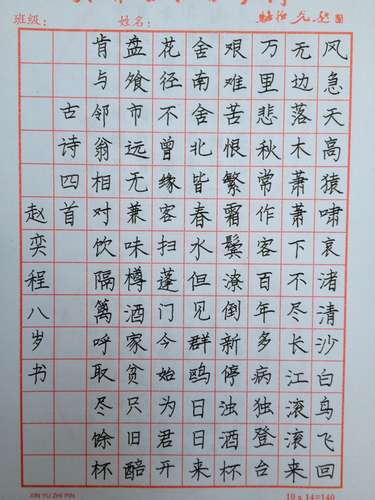 班级：
姓名：
风急天高猿啸哀渚清沙白鸟飞回
无边落木萧萧下不尽长江滚滚来
万里悲秋常作客百年多病独登台
艰难苦恨繁霜鬓潦倒新停浊酒杯
舍南舍北皆春水但见群鸥日日来
花径不曾缘客扫蓬门今始为君开
盘飧市远无兼味樽酒家贫只旧醅
肯与邻翁相对饮隔篱呼取尽馀杯
古诗四首
赵奕程八岁书
XIN YU ZHI PIN
10 x 14=140